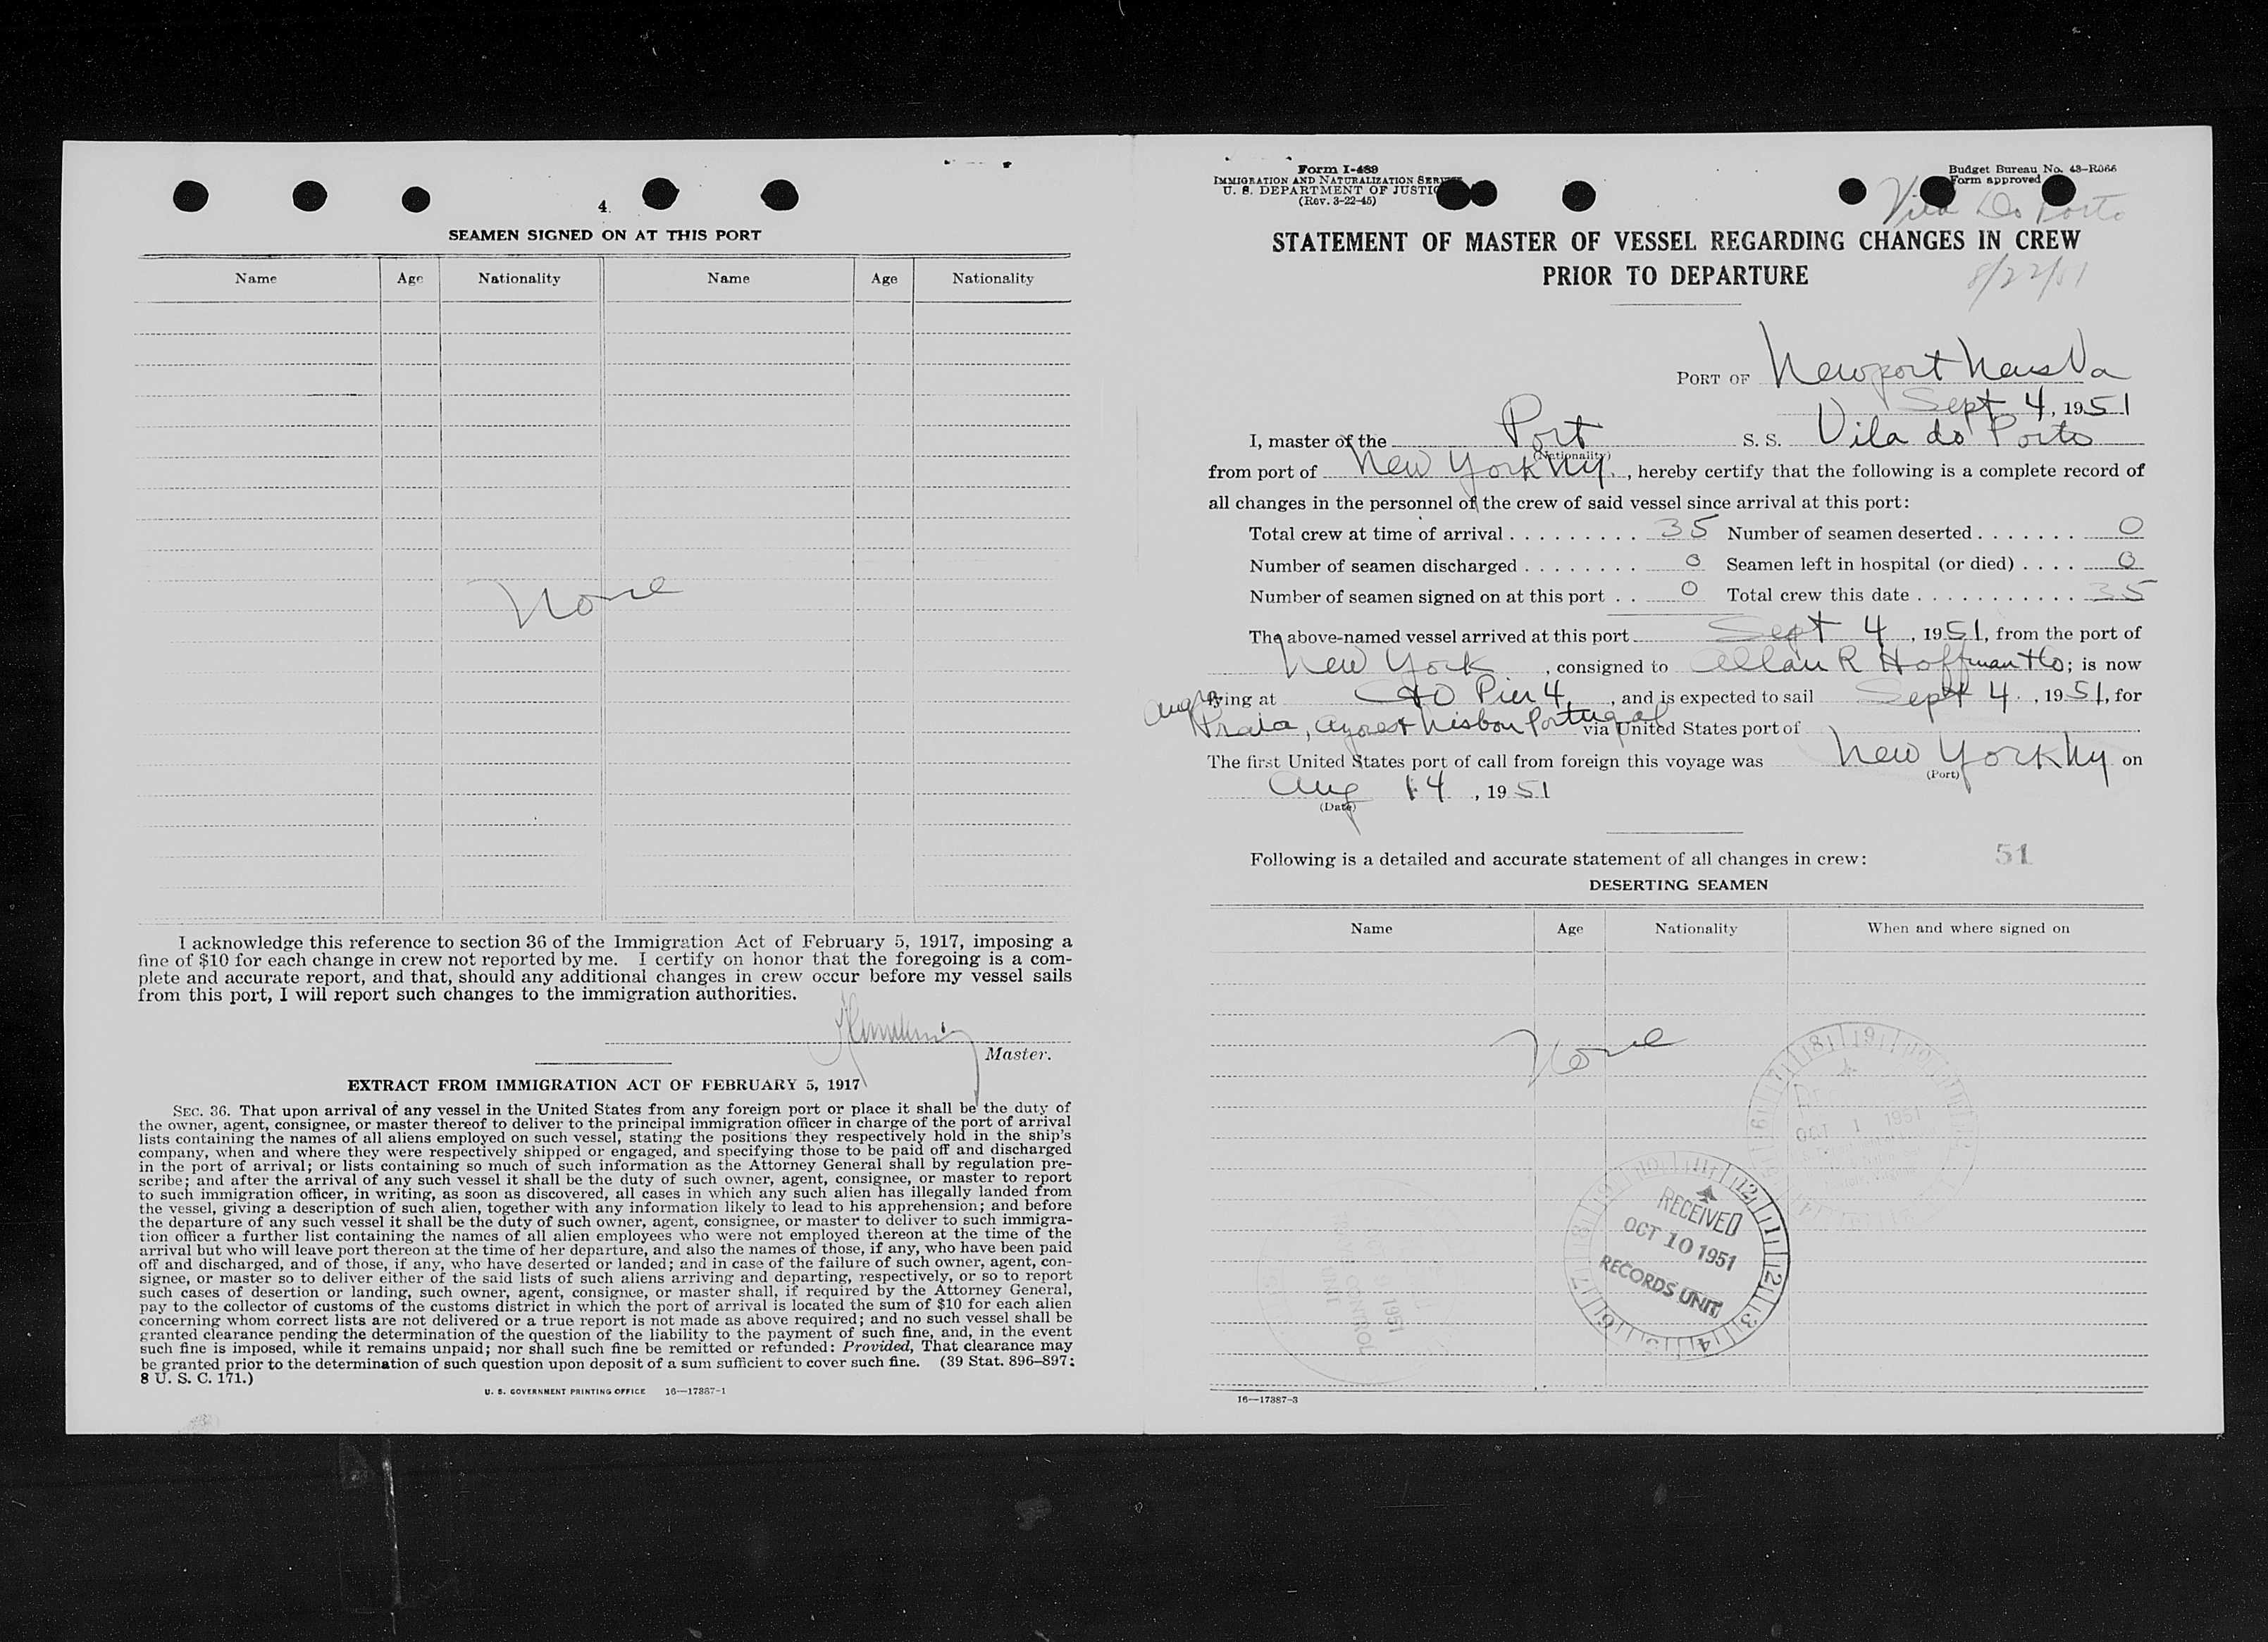 4
SEAMEN SIGNED ON AT THIS PORT
Name Age Nationality Name Age Nationality
None
I acknowledge this reference to section 36 of the Immigration Act of February 5, 1917, imposing a
fine of $10 for each change in crew not reported by me. I certify on honor that the foregoing is a com-
plete and accurate report, and that, should any additional changes in crew occur before my vessel sails
from this port, I will report such changes to the immigration authorities.
Master.
EXTRACT FROM IMMIGRATION ACT OF FEBRUARY 5, 1917
SEC. 36. That upon arrival of any vessel in the United States from any foreign port or place it shall be the duty of
the owner, agent, consignee, or master thereof to deliver to the principal immigration officer in charge of the port of arrival
lists containing the names of all aliens employed on such vessel, stating the positions they respectively hold in the ship's
company, when and where they were respectively shipped or engaged, and specifying those to be paid off and discharged
in the port of arrival; or lists containing so much of such information as the Attorney General shall by regulation pre-
scribe; and after the arrival of any such vessel it shall be the duty of such owner, agent, consignee, or master to report
to such immigration officer, in writing, as soon as discovered, all cases in which any such alien has illegally landed from
the vessel, giving a description of such alien, together with any information likely to lead to his apprehension; and before
the departure of any such vessel it shall be the duty of such owner, agent, consignee, or master to deliver to such immigra-
tion officer a further list containing the names of all alien employees who were not employed thereon at the time of the
arrival but who will leave port thereon at the time of her departure, and also the names of those, if any, who have been paid
off and discharged, and of those, if any, who have deserted or landed; and in case of the failure of such owner, agent, con-
signee, or master so to deliver either of the said lists of such aliens arriving and departing, respectively, or so to report
such cases of desertion or landing, such owner, agent, consignee, or master shall, if required by the Attorney General,
pay to the collector of customs of the customs district in which the port of arrival is located the sum of $10 for each alien
concerning whom correct lists are not delivered or a true report is not made as above required; and no such vessel shall be
granted clearance pending the determination of the question of the liability to the payment of such fine, and, in the event
such fine is imposed, while it remains unpaid; nor shall such fine be remitted or refunded: Provided, That clearance may
be granted prior to the determination of such question upon deposit of a sum sufficient to cover such fine. (39 Stat. 896–897;
8 U. S. C. 171.)
U. S. GOVERNMENT PRINTING OFFICE 16—17387-1
Form I-489
IMMIGRATION AND NATURALIZATION SERVICE
U. S. DEPARTMENT OF JUSTIC
(Rev. 3-22-45)
Budget Bureau No. 43-R066
Form approved
Vila Do Porto
STATEMENT OF MASTER OF VESSEL REGARDING CHANGES IN CREW
PRIOR TO DEPARTURE
8/22/51
PORT OF Newport News Va
Sept 4, 1951
I, master of the Port S. S. Vila do Porto
(Nationality)
from port of New York NY., hereby certify that the following is a complete record of
all changes in the personnel of the crew of said vessel since arrival at this port:
Total crew at time of arrival . . . . . . . . . 35 Number of seamen deserted . . . . . . . 0
Number of seamen discharged . . . . . . . . 0 Seamen left in hospital (or died) . . . . 0
Number of seamen signed on at this port . . 0 Total crew this date . . . . . . . . . . . 35
The above-named vessel arrived at this port Sept 4, 1951, from the port of
New York, consigned to Allan R Hoffman + Co; is now
lying at C&O Pier 4, and is expected to sail Sept 4, 1951, for
Angra
Praia, Azores + Lisbon Portugal via United States port of
The first United States port of call from foreign this voyage was New York NY on
(Port)
Aug 14, 1951
(Date)
Following is a detailed and accurate statement of all changes in crew: 51
DESERTING SEAMEN
Name Age Nationality When and where signed on
None
OCT 1 1951
RECEIVED
OCT 10 1951
RECORDS UNIT
16—17387-3